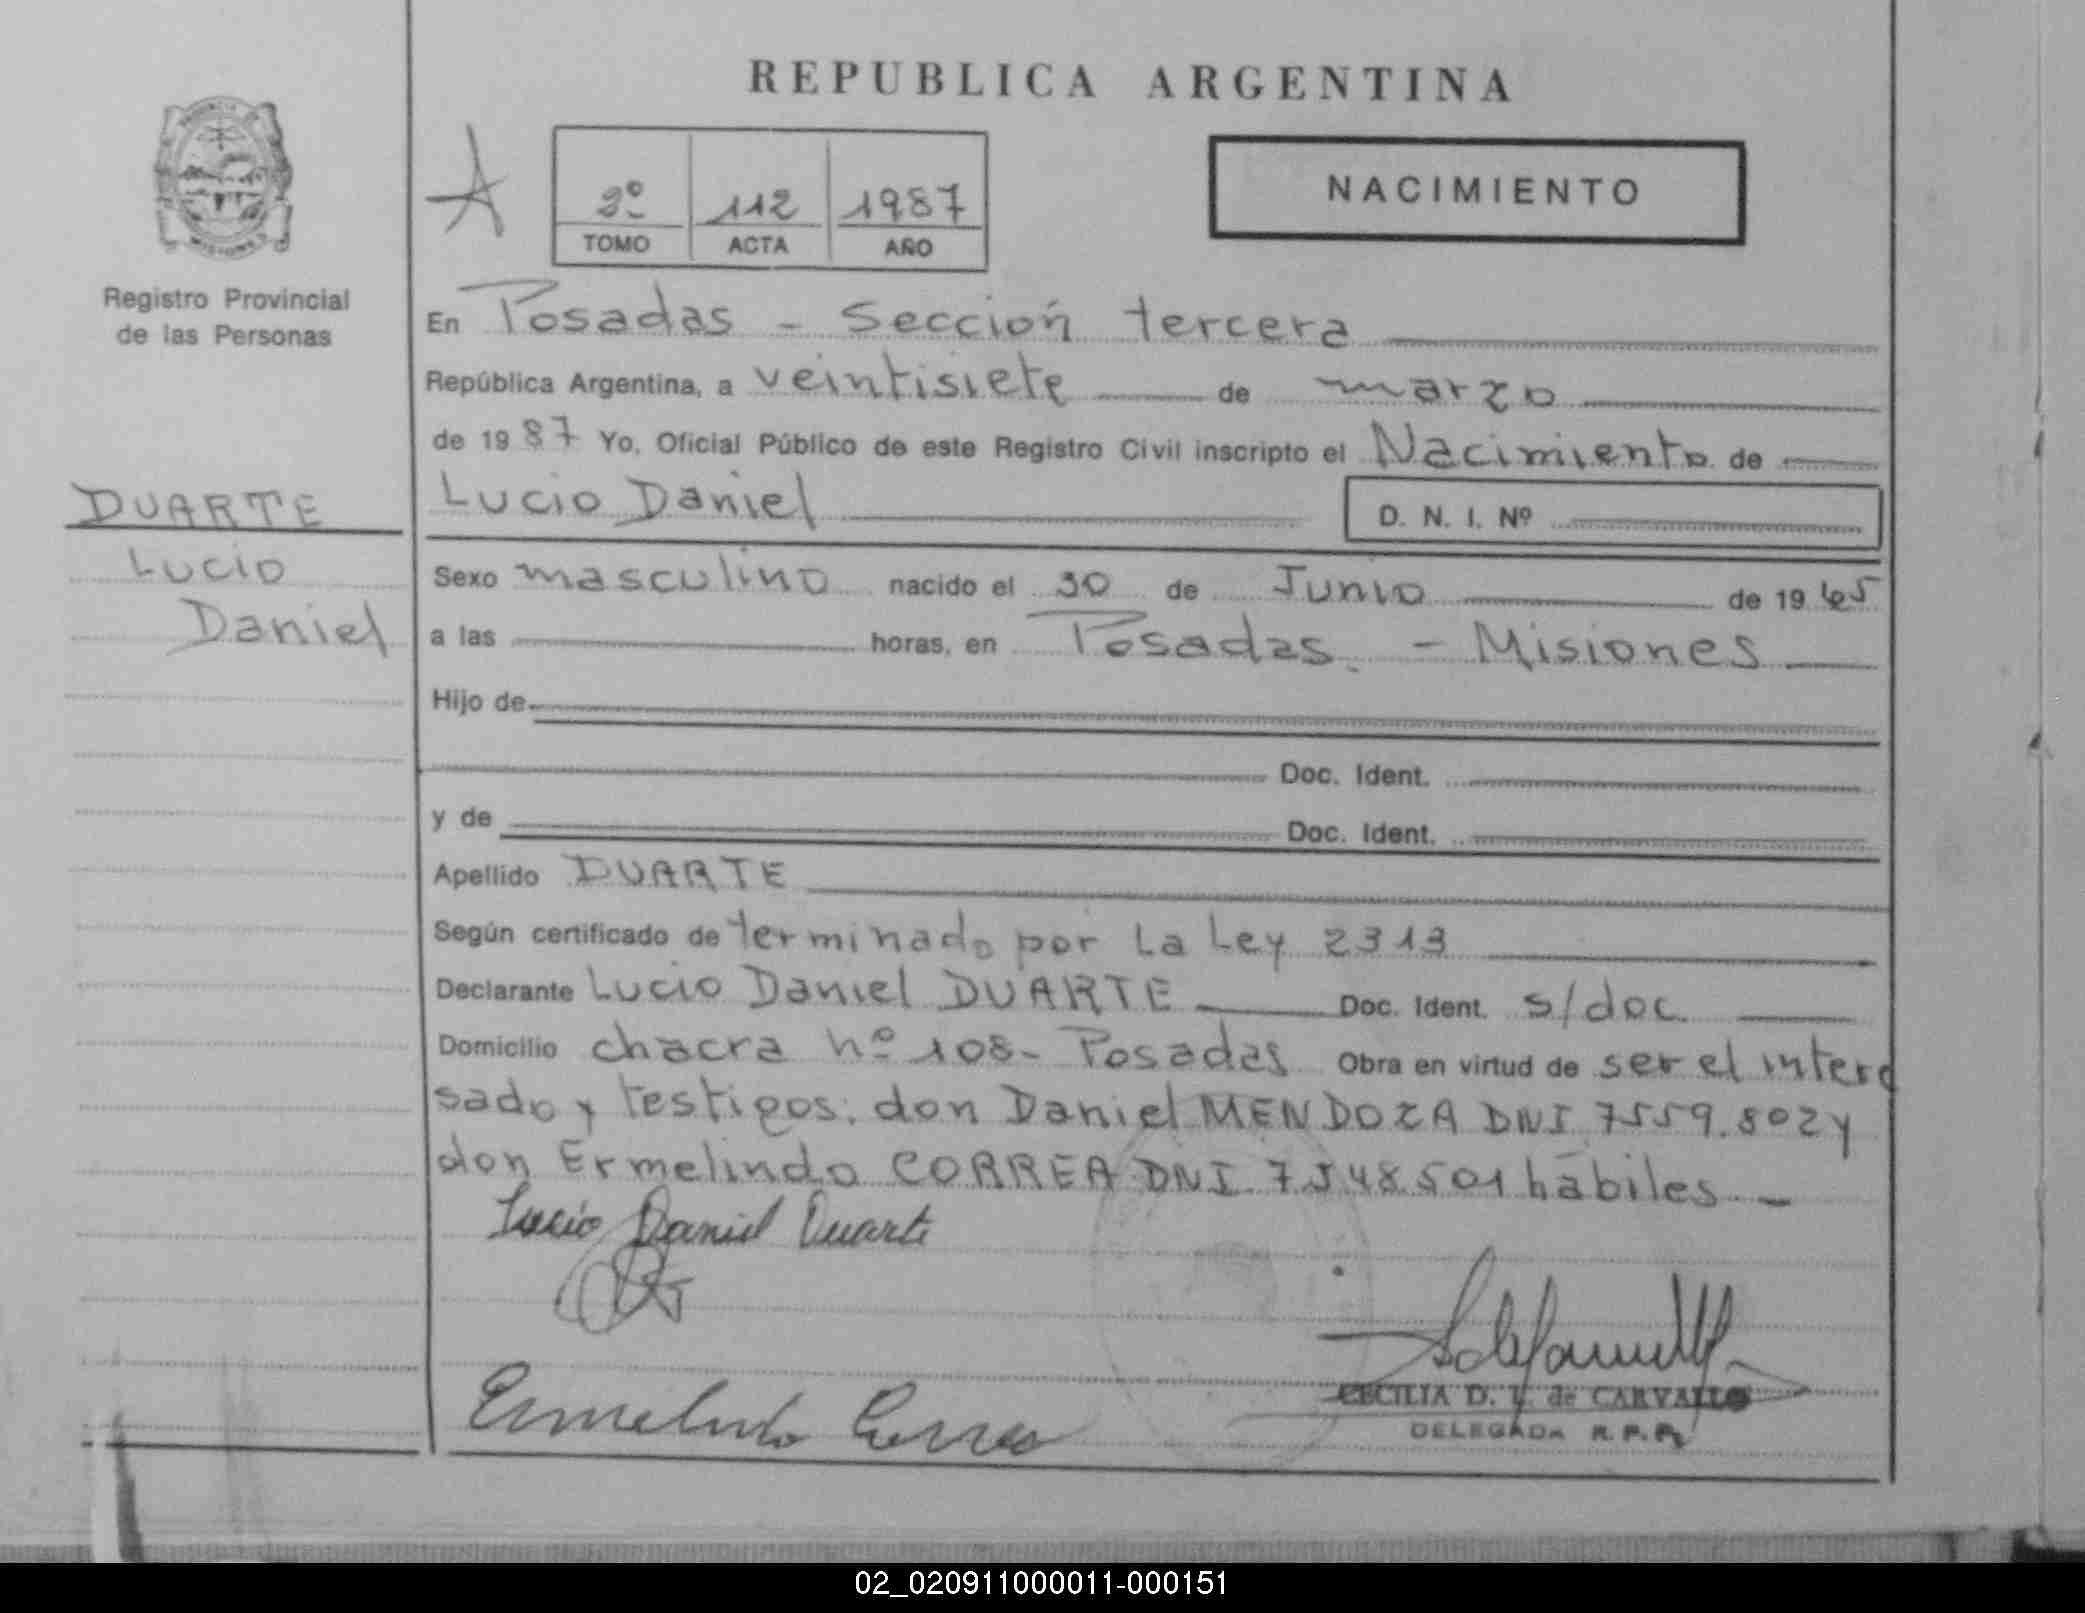 REPUBLICA ARGENTINA
A
112 1987
TOMO ACTA AÑO
NACIMIENTO
Registro Provincial
de las Personas
DUARTE
Lucio
Daniel
En Posadas - Sección tercera
República Argentina, a veintisiete de marzo
de 1987 Yo, Oficial Público de este Registro Civil inscripto el Nacimiento de
Lucio Daniel D. N. I. Nº
Sexo masculino nacido el 30 de Junio de 19
a las horas, en Posadas. - Misiones
Hijo de
Doc. Ident.
y de Doc. Ident.
Apellido DUARTE
Según certificado de terminado por La Ley 2313
Declarante Lucio Daniel DUARTE Doc. Ident. s/doc
Domicilio chacra nº 108- Posadas Obra en virtud de ser el intere
sado y testigos: don Daniel MENDOZA DNI 7559.802 y
don Ermelindo CORREA DNI 7548501 hábiles -
Lucio Daniel Duarte
Ermelindo Correa
CECILIA D. de CARVALLO
DELEGADA R.P.P.
02_020911000011-000151